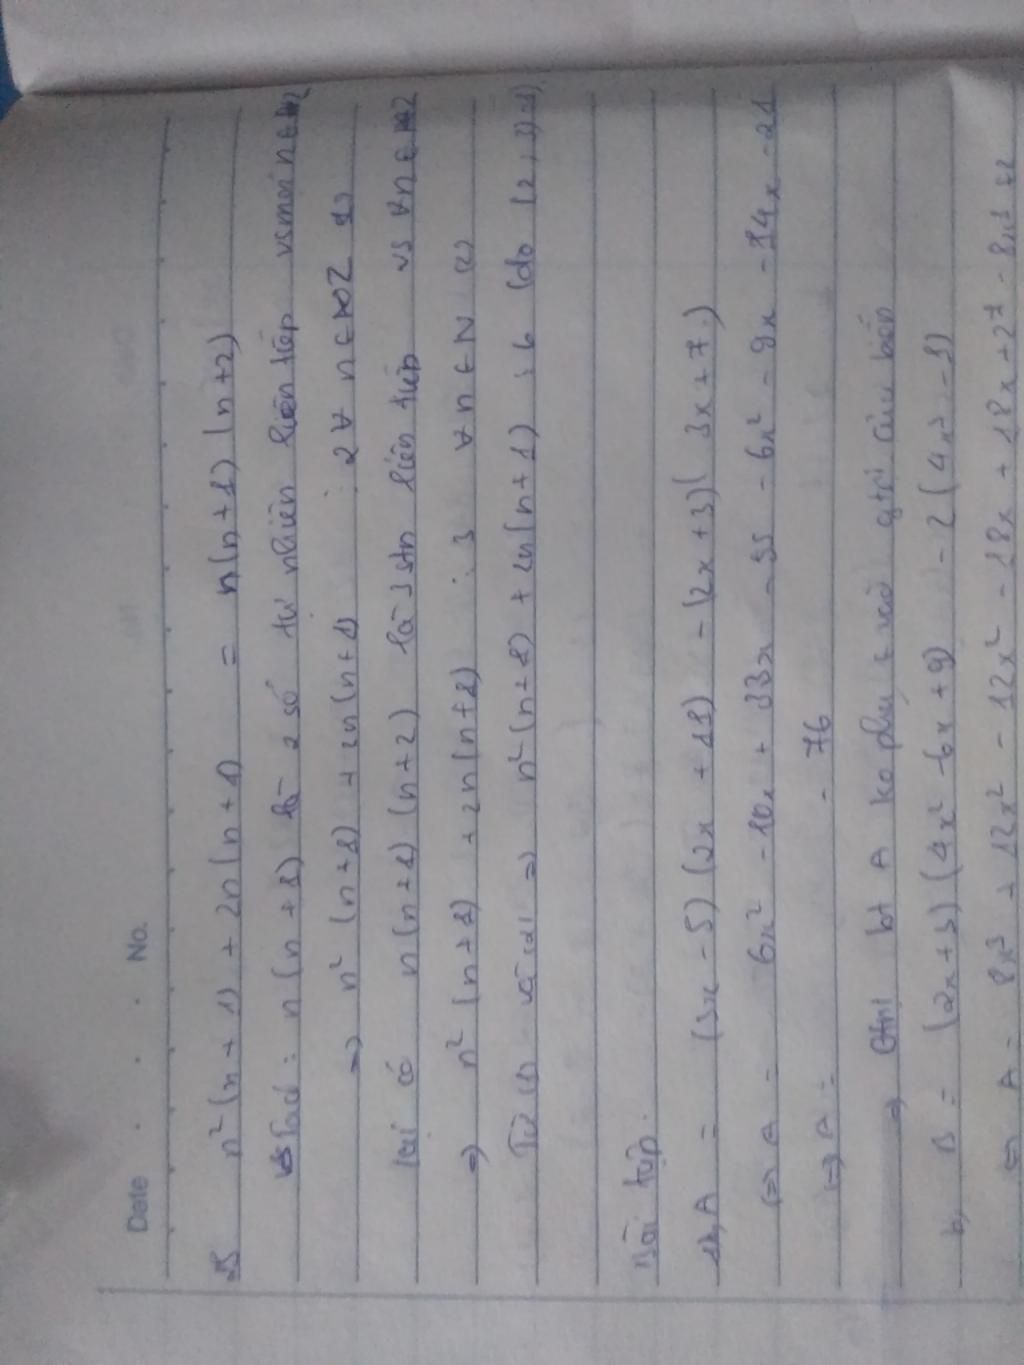 Date . . . No.
n² (n + 1) + 2n (n + 1) = n (n + 1) (n + 2)
Ta có : n (n + 1) là 2 số tự nhiên liên tiếp vs mọi n ∈ Z
=> n² (n + 1) + 2n (n + 1) ⋮ 2 ∀ n ∈ Z (1)
lại có n (n + 1) (n + 2) là 3 stn liên tiếp vs ∀ n ∈ Z
=> n² (n + 1) + 2n (n + 1) ⋮ 3 ∀ n ∈ N (2)
Từ (1) và (2) => n² (n + 1) + 2n (n + 1) ⋮ 6 (do (2, 3) = 1)
Bài tập.
A = (3x - 5) (2x + 11) - (2x + 3) ( 3x + 7 )
<=> A = 6x² - 10x + 33x - 55 - 6x² - 9x - 14x - 21
<=> A = - 76
=> gtrị bt A ko phụ t vào gtrị của biến
b, B = (2x + 3) (4x² - 6x + 9) - 2 (4x³ - 1)
<=> A = 8x³ + 12x² - 12x² - 18x + 18x + 27 - 8x³ + 2